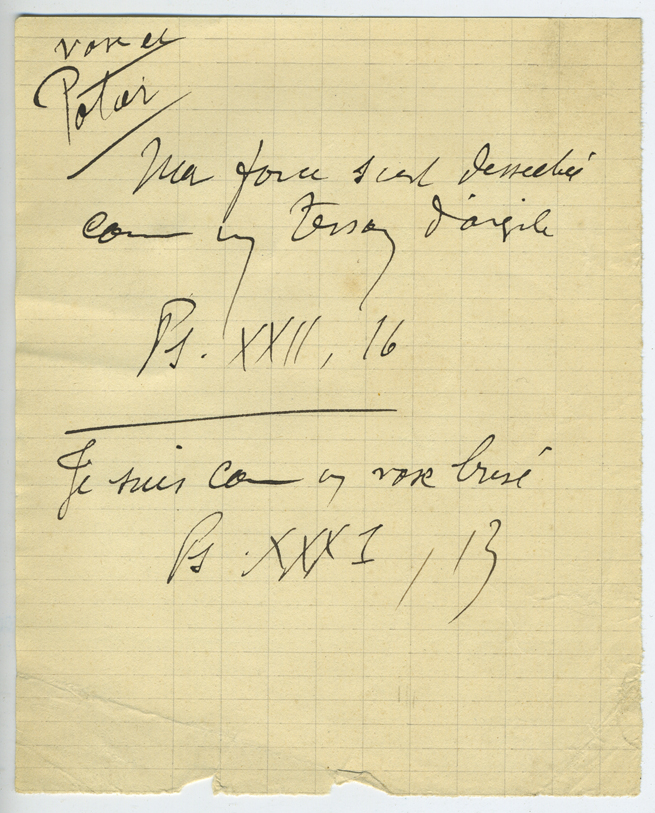 vase et
Potier
Ma force s'est desséchée
comme un tesson d'argile
Ps. XXII, 16
Je suis comme un vase brisé
Ps. XXXI, 13